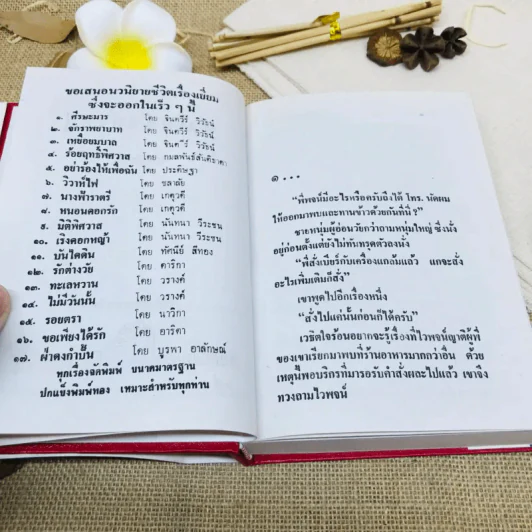 ขอเสนอนวนิยายชีวิตเรื่องเยี่ยม
ซึ่งจะออกในเร็ว ๆ นี้
๑. ศีรษะมาร โดย จินตวีร์ วิวัธน์
๒. จักราพยาบาท โดย จินตวีร์ วิวัธน์
๓. เหยื่อยมบาล โดย จินตวีร์ วิวัธน์
๔. ร้อยฤทธิ์พิศวาส โดย กมลพันธ์สันติธาดา
๕. อย่าร้องไห้เพื่อฉัน โดย ประดิษฐา
๖. วิวาห์ไฟ โดย ชลาลัย
๗. นางฟ้าราตรี โดย เกตุวดี
๘. หนอนดอกรัก โดย เกตุวดี
๙. มิติพิศวาส โดย นันทนา วีระชน
๑๐. เริงดอกหญ้า โดย นันทนา วีระชน
๑๑. บันไดดิน โดย ทัศนีย์ สีทอง
๑๒. รักต่างวัย โดย ดาริกา
๑๓. ทะเลหวาน โดย วรางค์
๑๔. ไม่มีวันนั้น โดย วรางค์
๑๕. รอยตรา โดย นาวิกา
๑๖. ขอเพียงได้รัก โดย อาริตา
๑๗. ฝ่าดงกำปั้น โดย บูรพา อาลักษณ์
ทุกเรื่องจัดพิมพ์ ขนาดมาตรฐาน
ปกแข็งพิมพ์ทอง เหมาะสำหรับทุกท่าน
๑...
“พี่พจน์มีอะไรหรือครับถึงได้ โทร. นัดผม
ให้ออกมาพบและทานข้าวด้วยกันที่นี่ ?”
ชายหนุ่มผู้อ่อนวัยกว่าถามหนุ่มใหญ่ ซึ่งนั่ง
อยู่ก่อนตั้งแต่ยังไม่ทันทรุดตัวลงนั่ง
“พี่สั่งเบียร์กับเครื่องแกล้มแล้ว แกจะสั่ง
อะไรเพิ่มเติมก็สั่ง”
เขาพูดไปอีกเรื่องหนึ่ง
“สั่งไปแค่นั้นก่อนก็ได้ครับ”
เวธิตใจร้อนอยากจะรู้เรื่องที่ไวพจน์ญาติผู้พี่
ของเขาเรียกมาพบที่ร้านอาหารมากกว่าอื่น ด้วย
เหตุนี้พอบริกรที่มารอรับคำสั่งผละไปแล้ว เขาจึง
ทวงถามไวพจน์